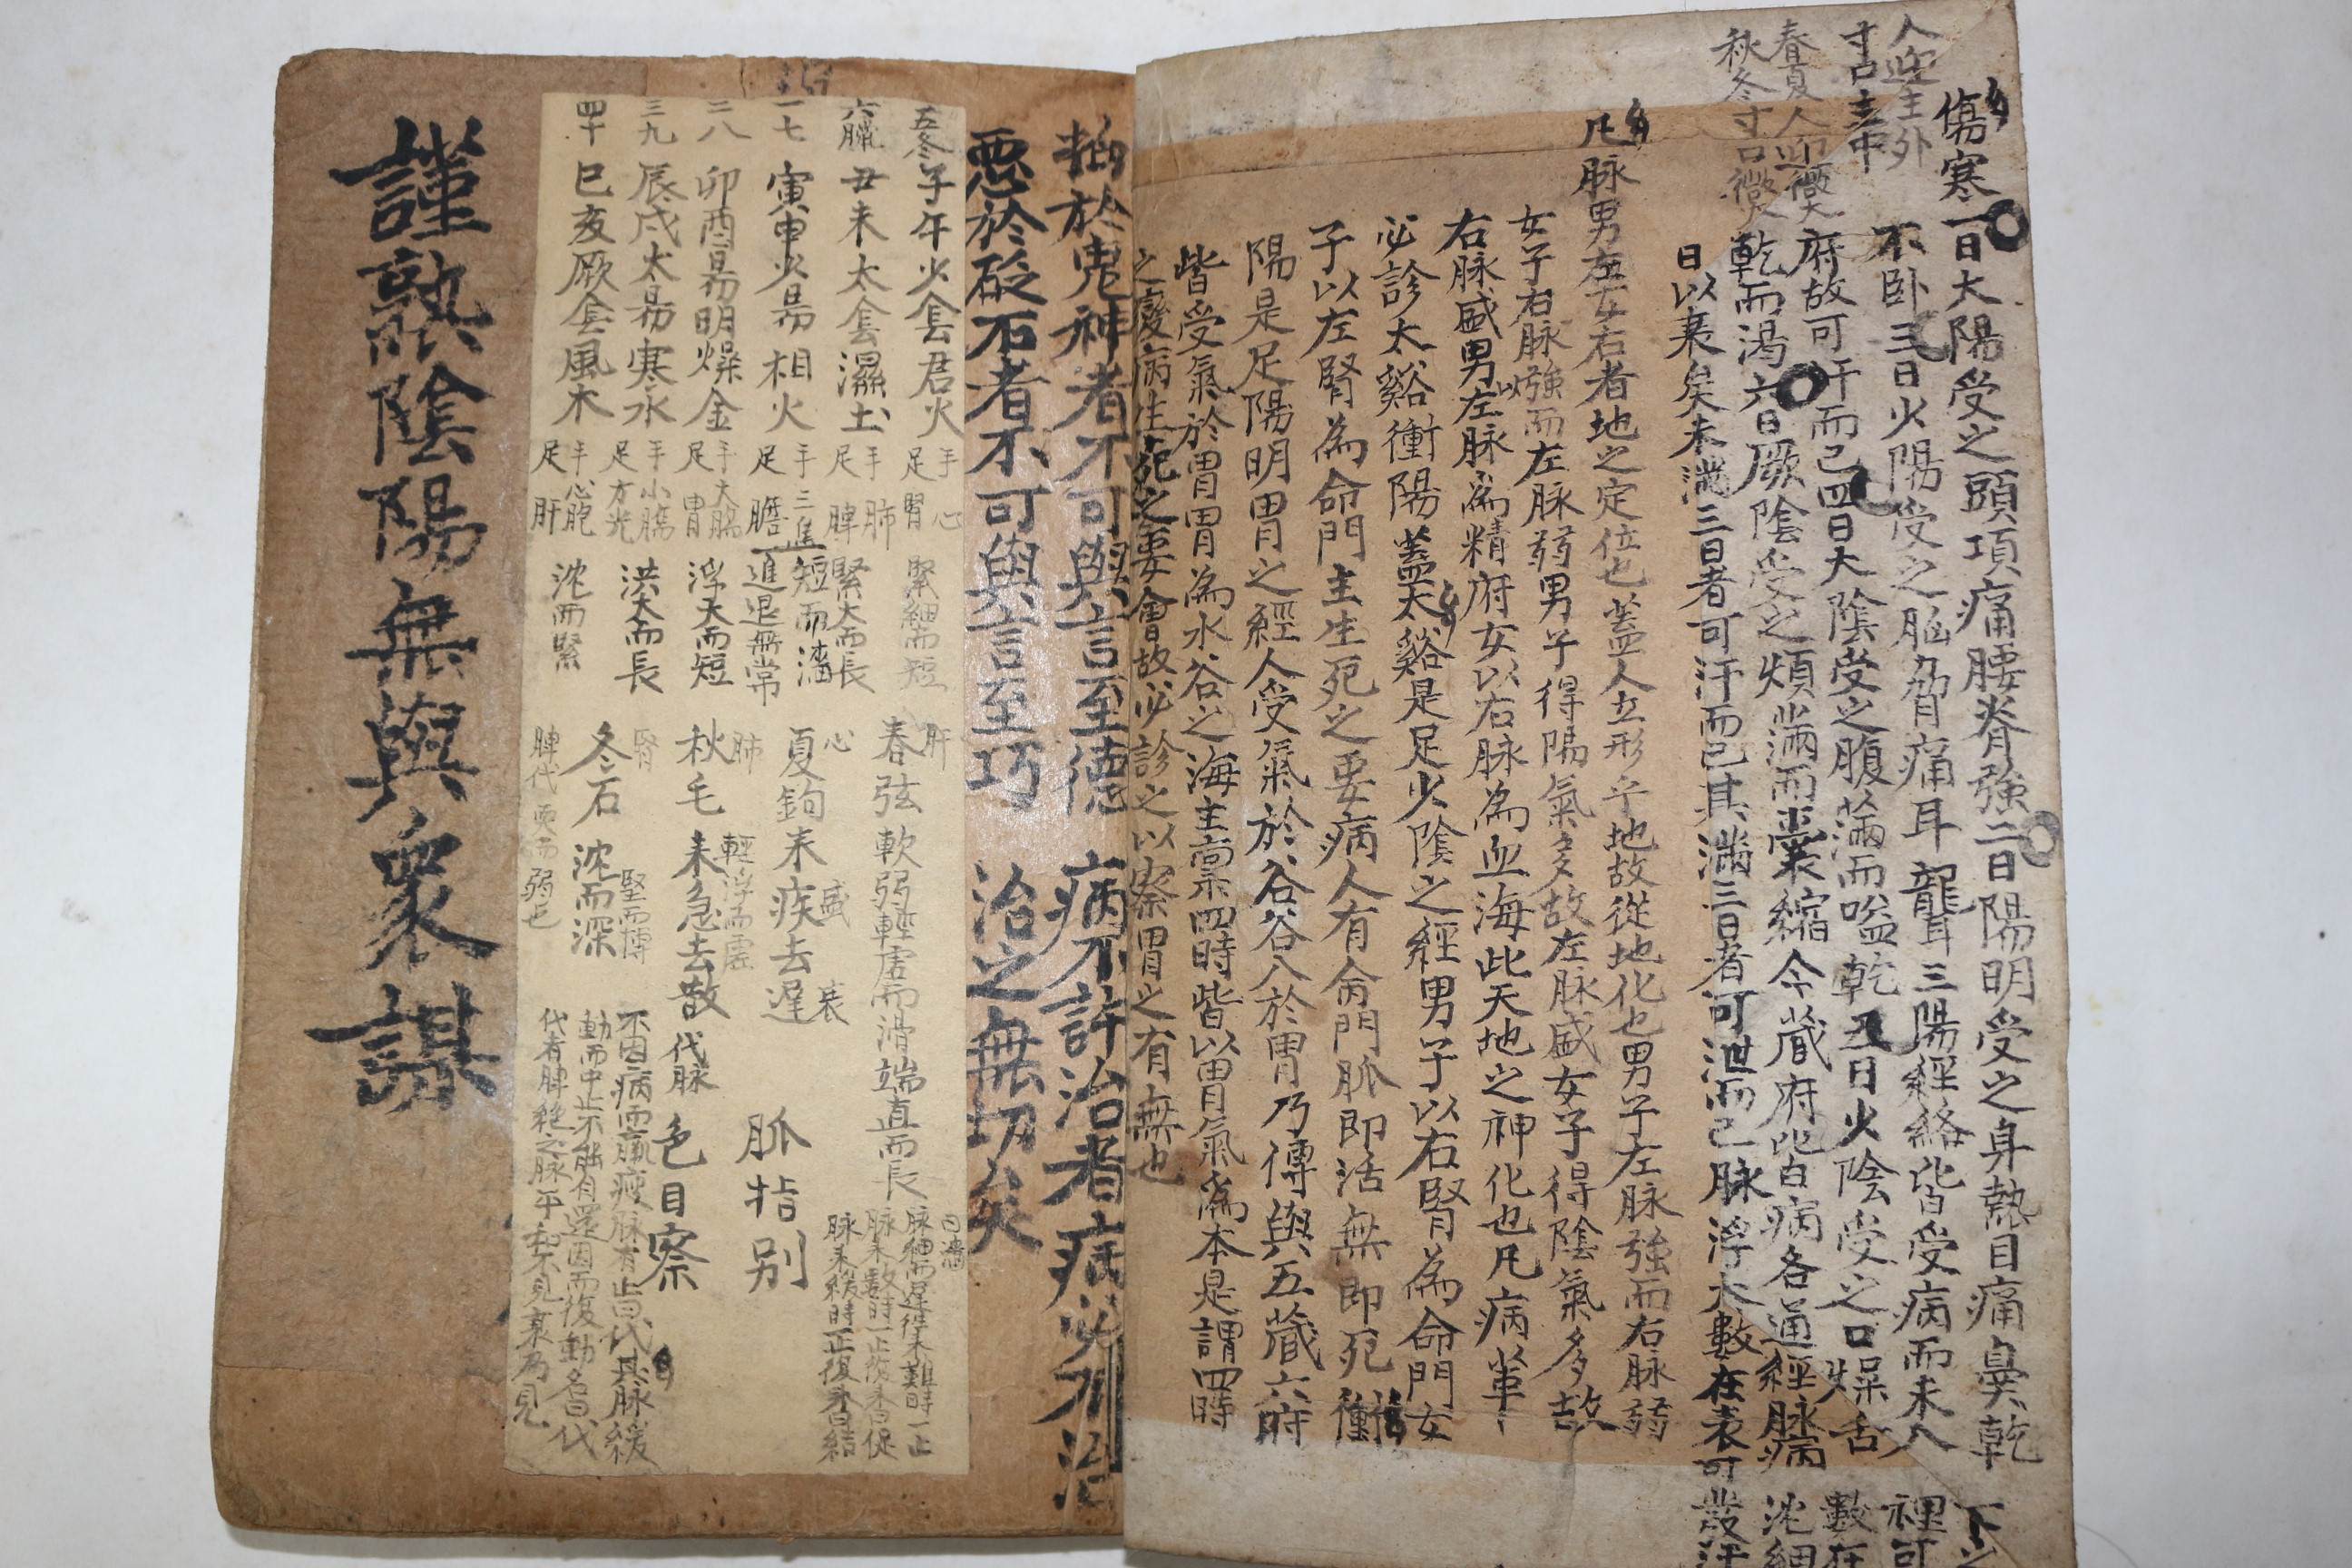 人迎主外
寸口主中
春夏人迎微大
秋冬寸口微大
傷寒一日太陽受之頭項痛腰脊強二日陽明受之身熱目痛鼻乾
不卧三日少陽受之胸脅痛耳聾三陽經絡皆受病而未入
府故可汗而已四日太陰受之腹滿而嗌乾五日少陰受之口燥舌
乾而渴六日厥陰受之煩滿而囊縮今藏府皆病各通經脉病
日以衰矣未滿三日者可汗而已其滿三日者可泄而已脉浮大數在表可發汗
凡脉男左女右者地之定位也蓋人立形乎地故從地化也男子左脉強而右脉弱
女子右脉強而左脉弱男子得陽氣多故左脉盛女子得陰氣多故
右脉盛男以左脉為精府女以右脉為血海此天地之神化也凡病革
必診太谿衝陽蓋太谿是足少陰之經男子以右腎為命門女
子以左腎為命門主生死之要病人有命門脈即活無即死衝
陽是足陽明胃之經人受氣於谷谷入於胃乃傳與五藏六府
皆受氣於胃胃為水谷之海主稟四時皆以胃氣為本是謂四時
之變病生死之要會故必診之以察胃之有無也
拘於鬼神者不可與言至德 病不許治者病必不治
惡於砭石者不可與言至巧 治之無功矣
子午少陰君火 手心 足腎 緊細而短
丑未太陰濕土 手肺 足脾 緊大而長
寅申少昜相火 手三焦 足膽 短而濇 進退無常
卯酉昜明燥金 手大腸 足胃 浮大而短
辰戌太昜寒水 手小腸 足方光 洪大而長
巳亥厥陰風木 手心胞 足肝 沈而緊
肝 春弦 軟弱輕虛而滑端直而長
心 夏鉤 來疾去遲 盛 衰
肺 秋毛 來急去散 輕浮而虛
腎 冬石 沈而深 堅而摶
脾代 耎而弱也
脉來數時一止復來曰促
脉來緩時一止復來曰結
脈指別
色目察
代脉
不因病而羸瘦脉有止曰代其脉緩
動而中止不能自還因而復動名曰代
代者脾絕之脉平和不見衰乃見
謹熟陰陽無與衆謀